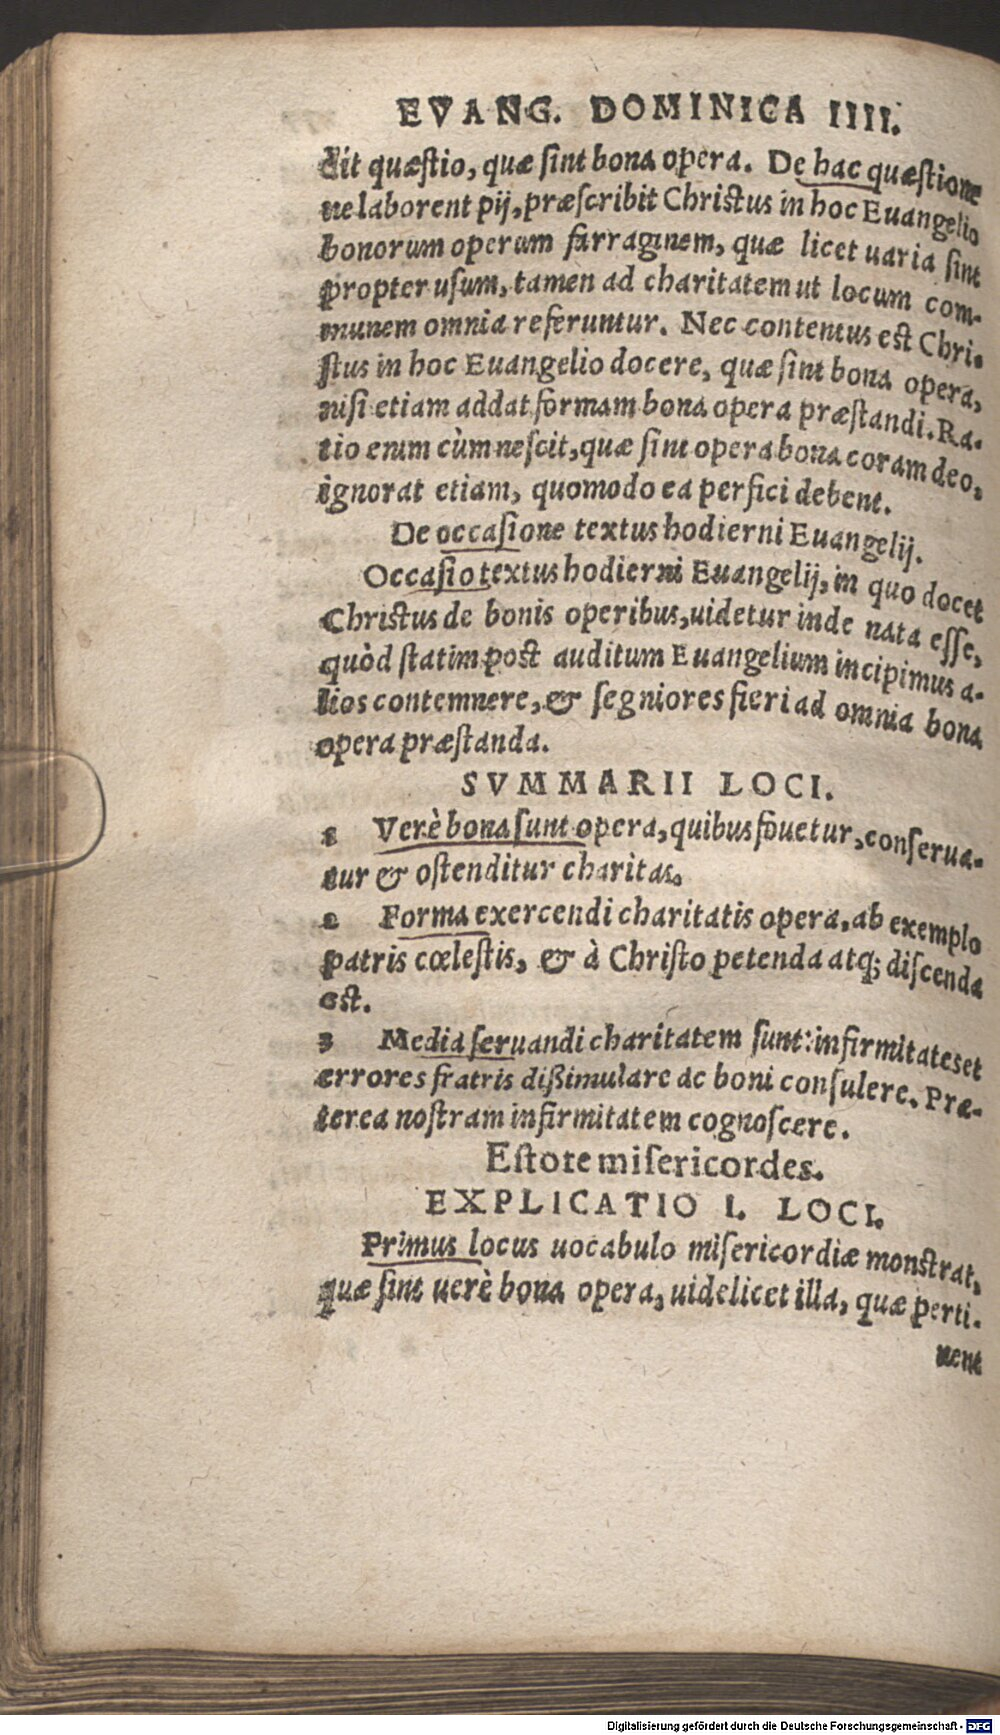 EVANG. DOMINICA IIII.
dit quæstio, quæ sint bona opera. De hac quæstione
ne laborent pij, præscribit Christus in hoc Euangelio
bonorum operum farraginem, quæ licet uaria sint
propter usum, tamen ad charitatem ut locum com-
munem omnia referuntur. Nec contentus est Chri-
stus in hoc Euangelio docere, quæ sint bona opera,
nisi etiam addat formam bona opera præstandi. Ra-
tio enim cùm nescit, quæ sint opera bona coram deo,
ignorat etiam, quomodo ea perfici debent.
De occasione textus hodierni Euangelij.
Occasio textus hodierni Euangelij, in quo docet
Christus de bonis operibus, uidetur inde nata esse,
quòd statim post auditum Euangelium incipimus a-
lios contemnere, & segniores fieri ad omnia bona
opera præstanda.
SVMMARII LOCI.
1 Verè bona sunt opera, quibus fouetur, conserua-
tur & ostenditur charitas.
2 Forma exercendi charitatis opera, ab exemplo
patris cœlestis, & à Christo petenda atq; discenda
est.
3 Media seruandi charitatem sunt: infirmitates et
errores fratris dißimulare ac boni consulere. Præ-
terea nostram infirmitatem cognoscere.
Estote misericordes.
EXPLICATIO I. LOCI.
Primus locus uocabulo misericordiæ monstrat,
quæ sint uerè bona opera, uidelicet illa, quæ perti-
nent
Digitalisierung gefördert durch die Deutsche Forschungsgemeinschaft - DFG